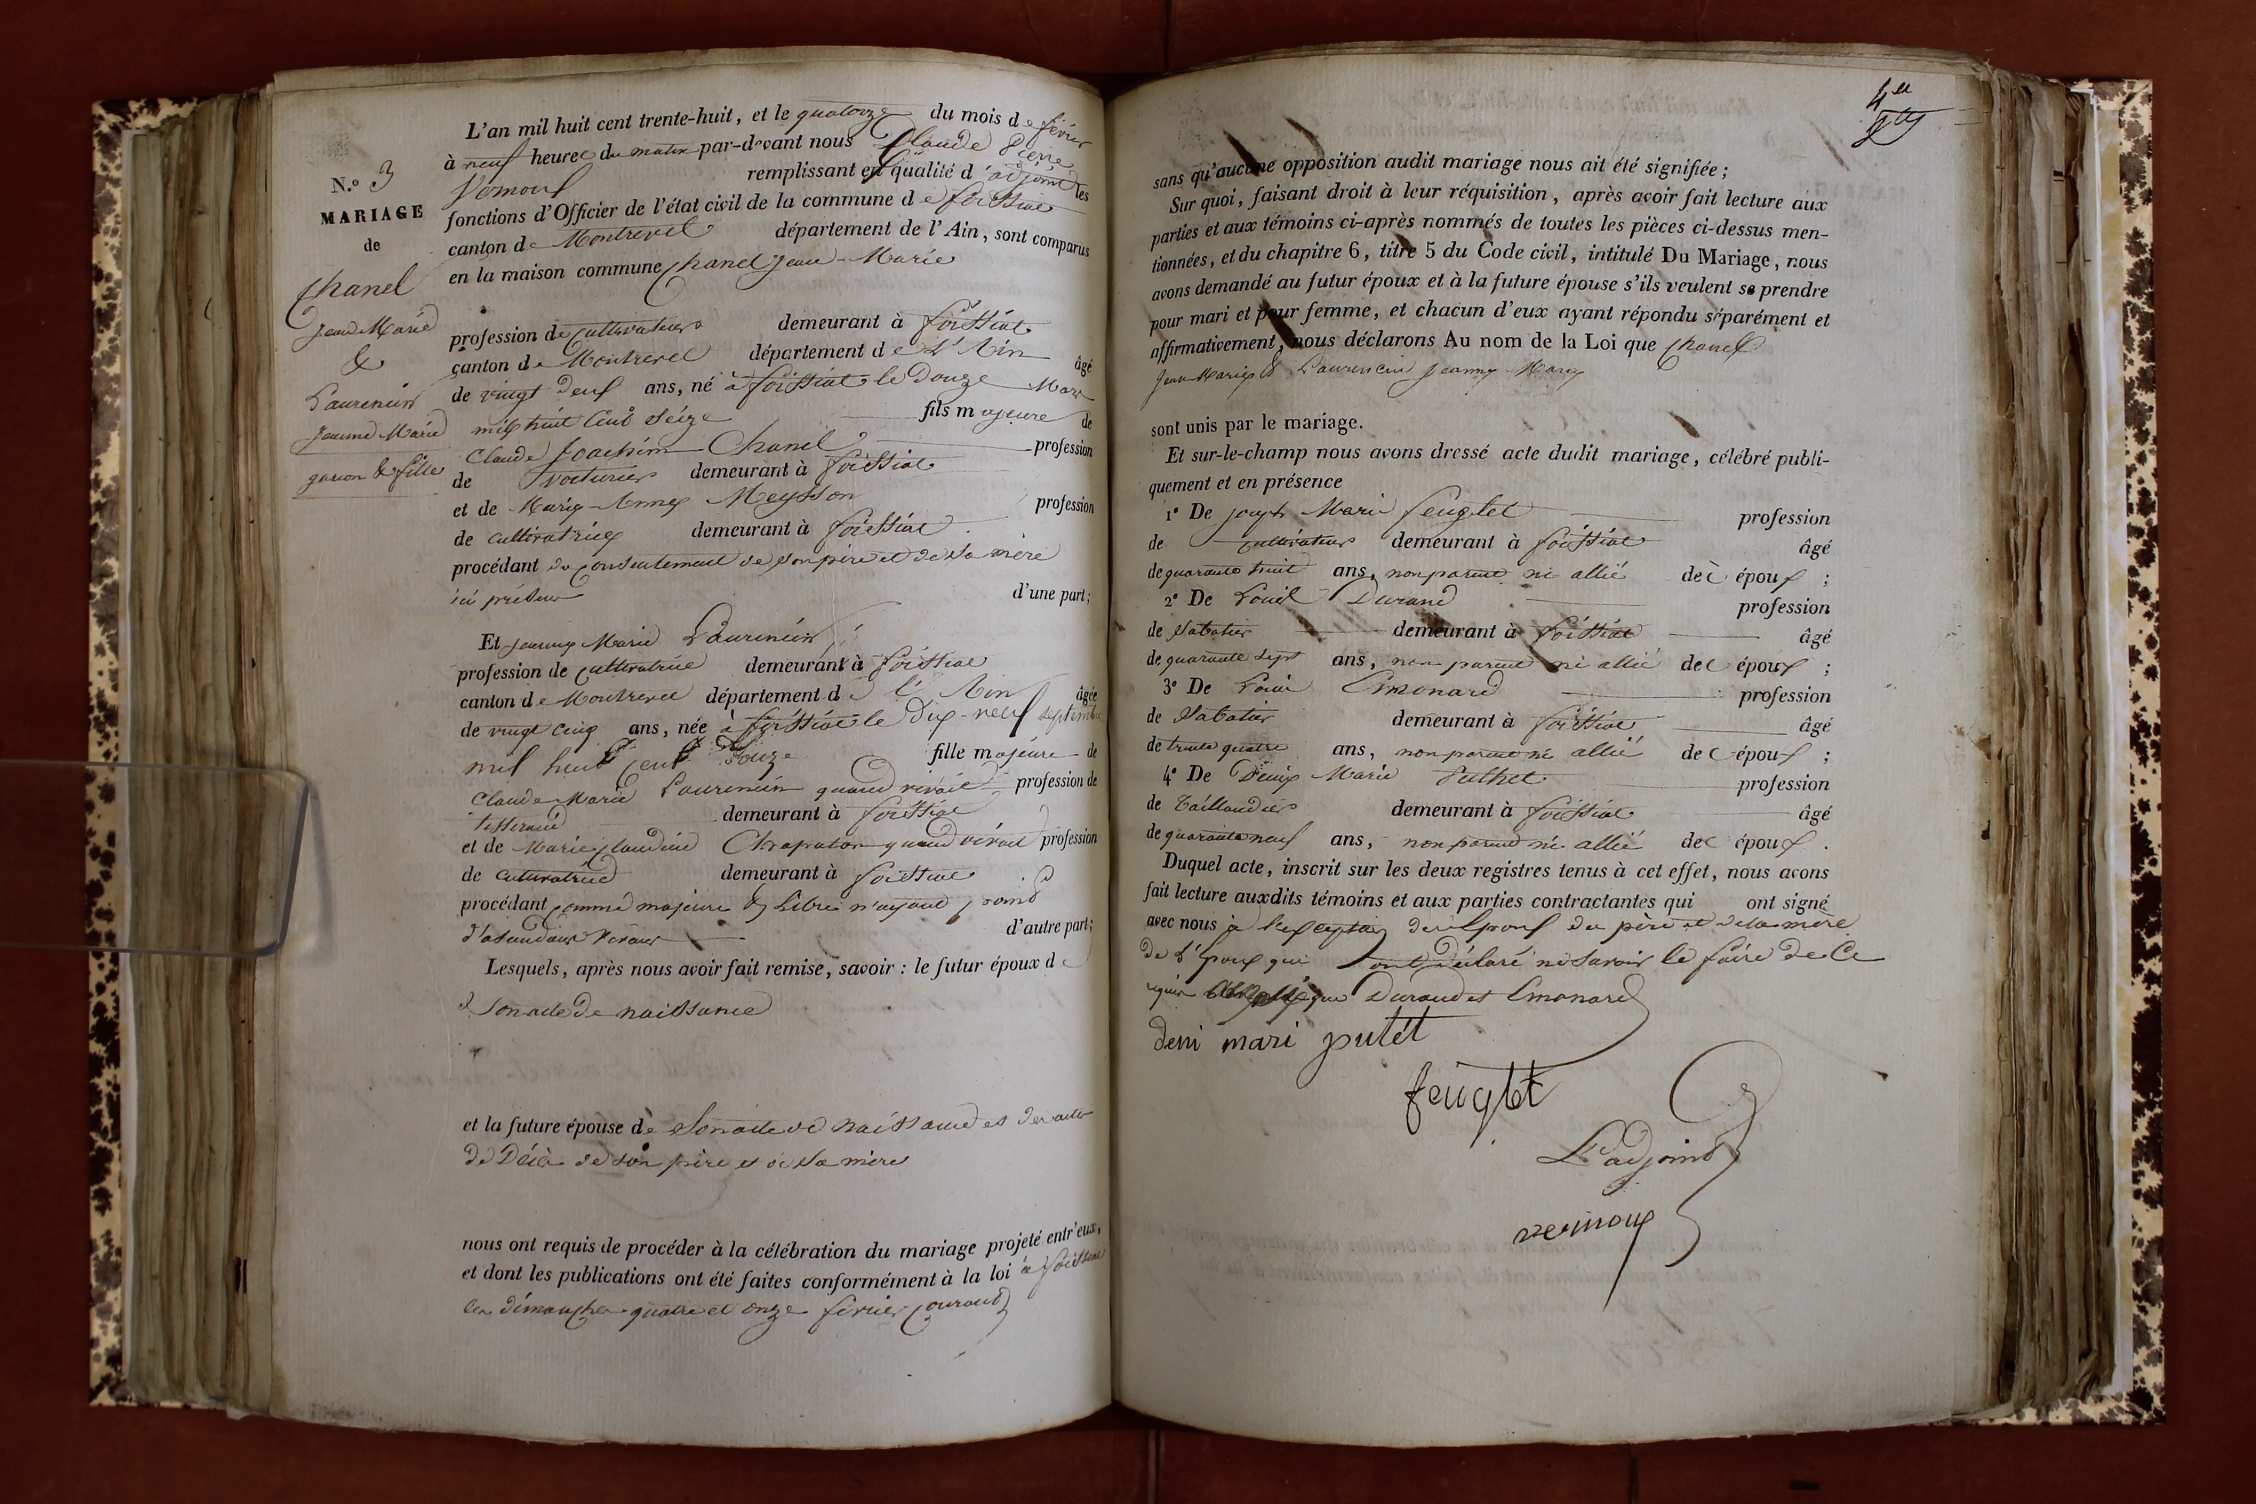 N.º 3
MARIAGE
de
Chanel
Jean Marie
&
Laurencin
Jeanne Marie
garcon & fille
L'an mil huit cent trente-huit, et le quatorze du mois de février
à neuf heures du matin par-devant nous Claude Pierre
remplissant en qualité d'adjoint les
fonctions d'Officier de l'état civil de la commune de foissiat
canton de Montrevel département de l'Ain, sont comparus
en la maison commune Chanel Jean-Marie
profession de cultivateur demeurant à foissiat
canton de Montrevel département de L'Ain âgé
de vingt deux ans, né à foissiat le douze Mars
mil huit cent seize fils majeure de
Claude Joachim Chanel profession
de voiturier demeurant à foissiat
et de Marie-Anne Meysson profession
de cultivatrice demeurant à foissiat
procédant du consentement de son père et de sa mère
ici présens d'une part;
Et Jeanne Marie Laurencin
profession de cultivatrice demeurant à foissiat
canton de Montrevel département de l'Ain âgée
de vingt cinq ans, née à foissiat le dix-neuf septembre
mil huit cent douze fille majeure de
Claude-Marie Laurencin quand vivait profession de
tisserand demeurant à foissiat
et de Marie Claudine Chapaton quand vivait profession
de cultivatrice demeurant à foissiat
procédant comme majeure & libre n'ayant point
d'asendans vivans d'autre part;
Lesquels, après nous avoir fait remise, savoir: le futur époux de
son acte de naissance
et la future épouse de son acte de naissance et des actes
de décès de son père et de sa mère
nous ont requis de procéder à la célébration du mariage projeté entr'eux,
et dont les publications ont été faites conformément à la loi à foissiat
les dimanches quatre et onze février courant
4e
sans qu'aucune opposition audit mariage nous ait été signifiée;
Sur quoi, faisant droit à leur réquisition, après avoir fait lecture aux
parties et aux témoins ci-après nommés de toutes les pièces ci-dessus men-
tionnées, et du chapitre 6, titre 5 du Code civil, intitulé Du Mariage, nous
avons demandé au futur époux et à la future épouse s'ils veulent se prendre
pour mari et pour femme, et chacun d'eux ayant répondu séparément et
affirmativement, nous déclarons Au nom de la Loi que Chanel
Jean-Marie & Laurencin Jeanne-Marie
sont unis par le mariage.
Et sur-le-champ nous avons dressé acte dudit mariage, célébré publi-
quement et en présence
1º De Joseph Marie feuglet profession
de cultivateur demeurant à foissiat âgé
de quarante huit ans, non parent ni allié des époux;
2º De Louis Durand profession
de Sabotier demeurant à foissiat âgé
de quarante sept ans, non parent ni allié des époux;
3º De Louis Emonard profession
de Sabotier demeurant à foissiat âgé
de trente quatre ans, non parent ni allié des époux;
4º De Denis Marie Puthet profession
de Taillandier demeurant à foissiat âgé
de quarante neuf ans, non parent ni allié des époux.
Duquel acte, inscrit sur les deux registres tenus à cet effet, nous avons
fait lecture auxdits témoins et aux parties contractantes qui ont signé
avec nous à l'exception des Epoux du père et de la mère
de l'Epoux qui ont déclaré ne savoir le faire de ce
requis que Durand et Emonard
deni mari putét
feuglet
L'adjoint